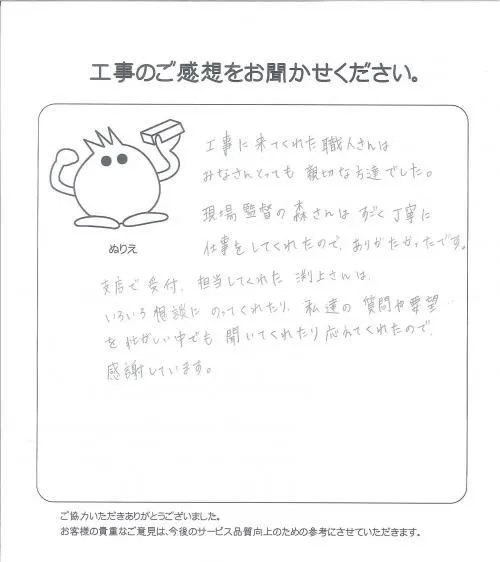 工事のご感想をお聞かせください。
工事に来てくれた職人さんは
みなさんとっても親切な方達でした。
現場監督の森さんはすごく丁寧に
仕事をしてくれたので、ありがたかったです。
ぬりえ
支店で受付、担当してくれた渕上さんは、
いろいろ相談にのってくれたり、私達の質問や要望
を忙しい中でも聞いてくれたり応えてくれたので、
感謝しています。
ご協力いただきありがとうございました。
お客様の貴重なご意見は、今後のサービス品質向上のための参考にさせていただきます。